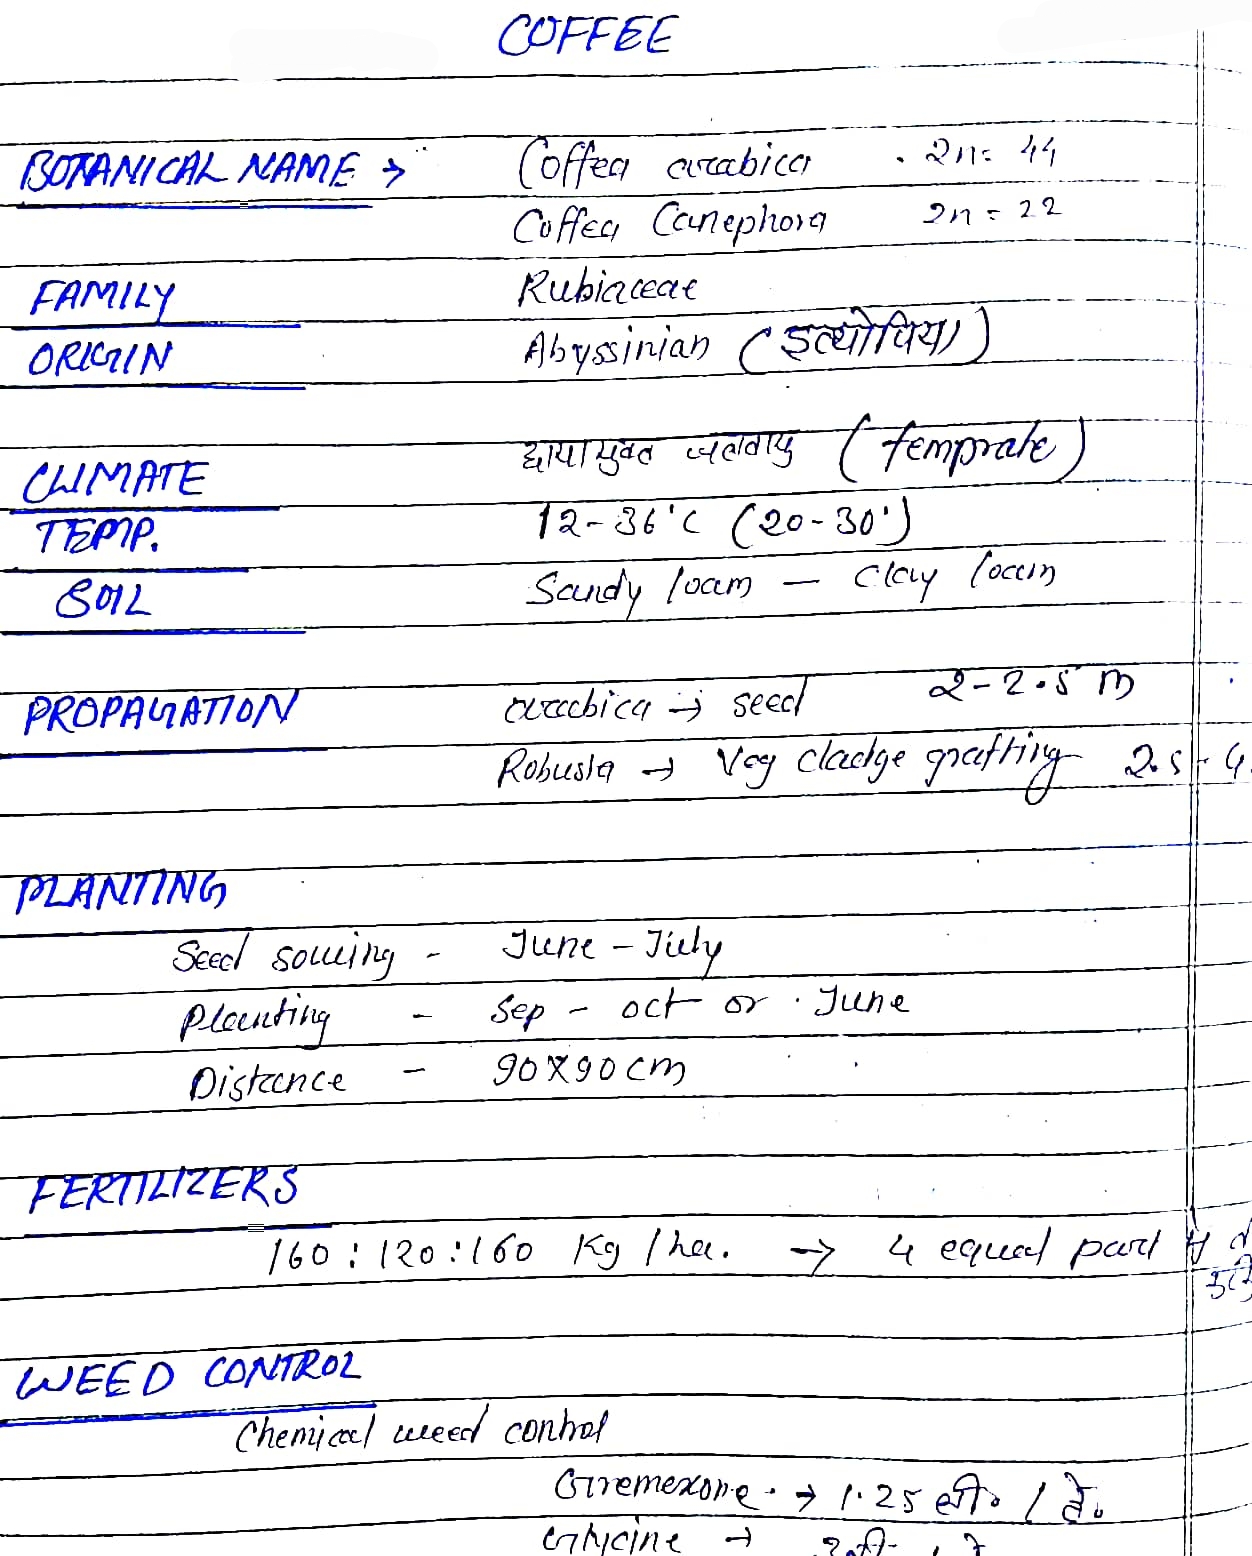 COFFEE
BOTANICAL NAME → Coffea arabica . 2n= 44
Coffea Canephora 2n = 22
FAMILY Rubiaceae
ORIGIN Abyssinian (इत्योपिया)
CLIMATE छायायुक्त जलवायु (temprate)
TEMP. 12-36°C (20-30°)
SOIL Sandy loam — Clay loam
PROPAGATION arabica → seed 2-2.5 m
Robusta → Veg cladge grafting 2.5 - 4
PLANTING
Seed sowing - June - July
Planting - Sep - oct or June
Distance - 90X90 cm
FERTILIZERS
160 : 120 : 160 Kg / ha. → 4 equal part में
WEED CONTROL
Chemical weed control
Gremexone → 1.25 ली० / है०
Glycine →